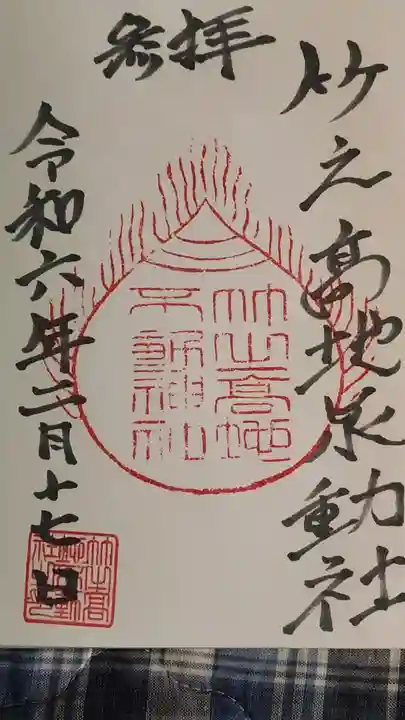 参拝
竹之高地不動社
竹之高地
不動神社
令和六年二月十七日